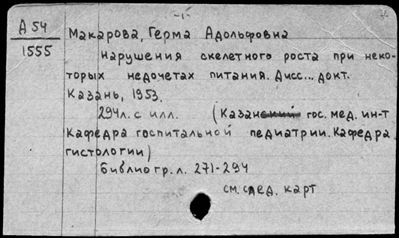 -1-
А 54
1555
Макарова, Герма Адольфовна
Нарушения скелетного роста при неко-
торых недочетах питания. Дисс... докт.
Казань, 1953.
294л. с илл. (Казанский гос. мед. ин-т
Кафедра госпитальной педиатрии. Кафедра
гистологии)
Библиогр. л. 271-294
см. след. карт